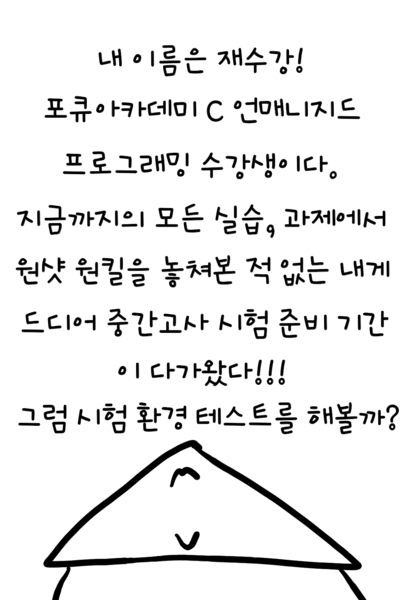 내 이름은 재수강!
포큐아카데미 C 언매니지드
프로그래밍 수강생이다.
지금까지의 모든 실습, 과제에서
원샷 원킬을 놓쳐본 적 없는 내게
드디어 중간고사 시험 준비 기간
이 다가왔다!!!
그럼 시험 환경 테스트를 해볼까?